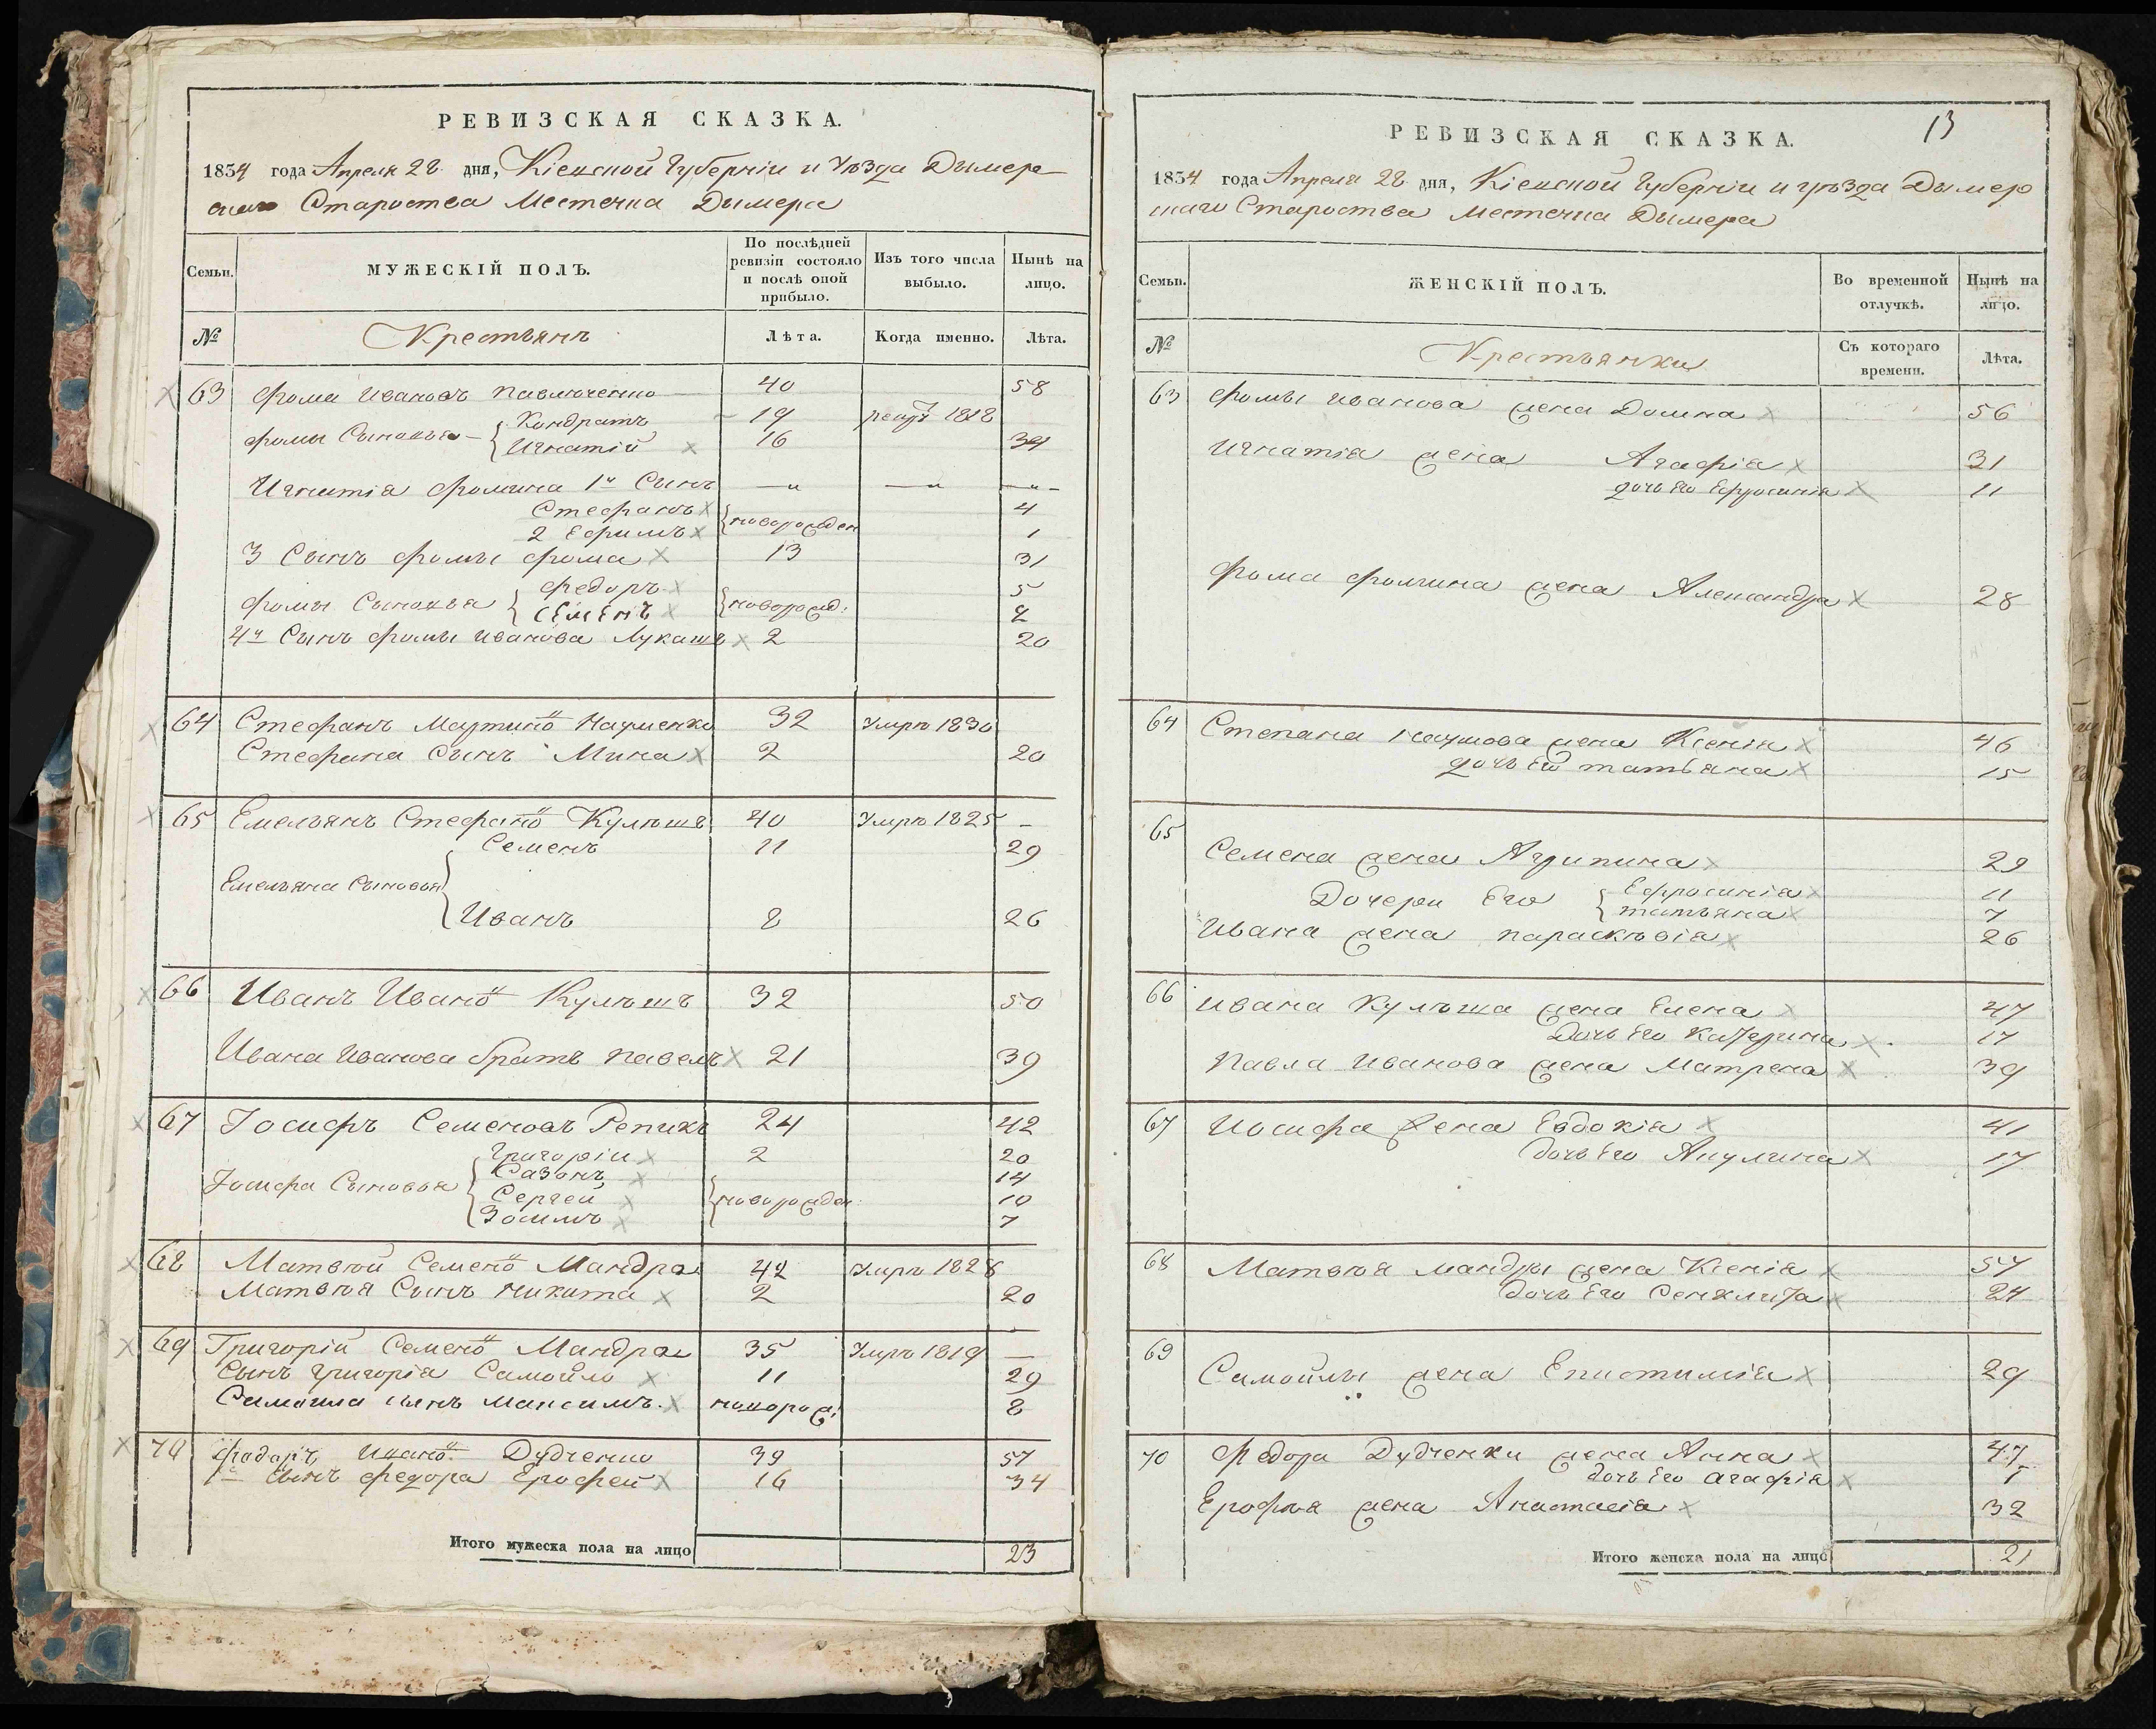 РЕВИЗСКАЯ СКАЗКА.
1834 года Апреля 28 дня, Кіевской Губерніи и Уѣзда Дымерс-
скаго Староства Местечка Дымера
Семьи.
МУЖЕСКІЙ ПОЛЪ.
По послѣдней ревизіи состояло и послѣ оной прибыло.
Изъ того числа выбыло.
Нынѣ на лицо.
№ Крестьянъ Лѣта. Когда именно. Лѣта.
63 Фома Ивановъ Павлюченко 40 58
Фомы Сыновья Кондратъ 19 1818
Игнатій 16 34
Игнатія Фомина 1й Сынъ
Стефанъ новорожден 4
2 Ефимъ 1
3 Сынъ Фомы Фома 13 31
Фомы Сыновья Федоръ новорожд: 5
Семенъ 2
4й Сынъ Фомы Иванова Лукашъ 2 20
64 Стефанъ Мартино Науменко 32 Умръ 1830
Стефана Сынъ Мина 2 20
65 Емельянъ Стефано Кулѣшъ 40 Умръ 1825 -
Семенъ 11 29
Емельяна Сыновья
Иванъ 8 26
66 Иванъ Ивано Кулѣшъ 32 50
Ивана Иванова братъ Павелъ 21 39
67 Іосифъ Семеновъ Репихъ 24 42
Григорій 2 20
Сазонъ 14
Іосифа Сыновья Сергей новорожден 10
Зосимъ 7
68 Матвѣй Семено Мандра 42 Умръ 1828
Матвѣя Сынъ Никита 2 20
69 Григорій Семено Мандра 35 Умръ 1819 —
Сынъ Григорія Самойло 11 29
Самойла сынъ Максимъ. новорож: 8
70 Федоръ Ивано Дудченко 39 57
1й Сынъ Федора Ерофей 16 34
Итого мужеска пола на лицо 23
13
РЕВИЗСКАЯ СКАЗКА.
1834 года Апреля 28 дня, Кіевской Губерніи и уѣзда Дымер
скаго Староства Местечка Дымера
Семьи.
ЖЕНСКІЙ ПОЛЪ.
Во временной отлучкѣ.
Нынѣ на лицо.
№ Крестьянки Съ котораго времени. Лѣта.
63 Фомы Иванова жена Домна 56
Игнатія жена Агафія 31
дочь Его Ефросинія 11
Фома Фомина жена Александра 28
64 Степана Наумова жена Ксенія 46
дочь Его татьяна 15
65
Семена жена Агрипина 29
Дочери Его Ефросинія 11
татьяна 7
Ивана жена параскѣвія 26
66 Ивана Кулѣша жена Елена 47
Дочь Его Катерина 17
Павла Иванова жена Матрена 39
67 Иосифа жена Евдокія 41
дочь Его Акулина 17
68 Матвѣя Мандры жена Ксенія 57
дочь Его Сенклита 24
69
Самойлы жена Епистимія 29
70 Федора Дудченки жена Анна 47
дочь Его агафія 1
Ерофѣя жена Анастасія 32
Итого женска пола на лицо 21